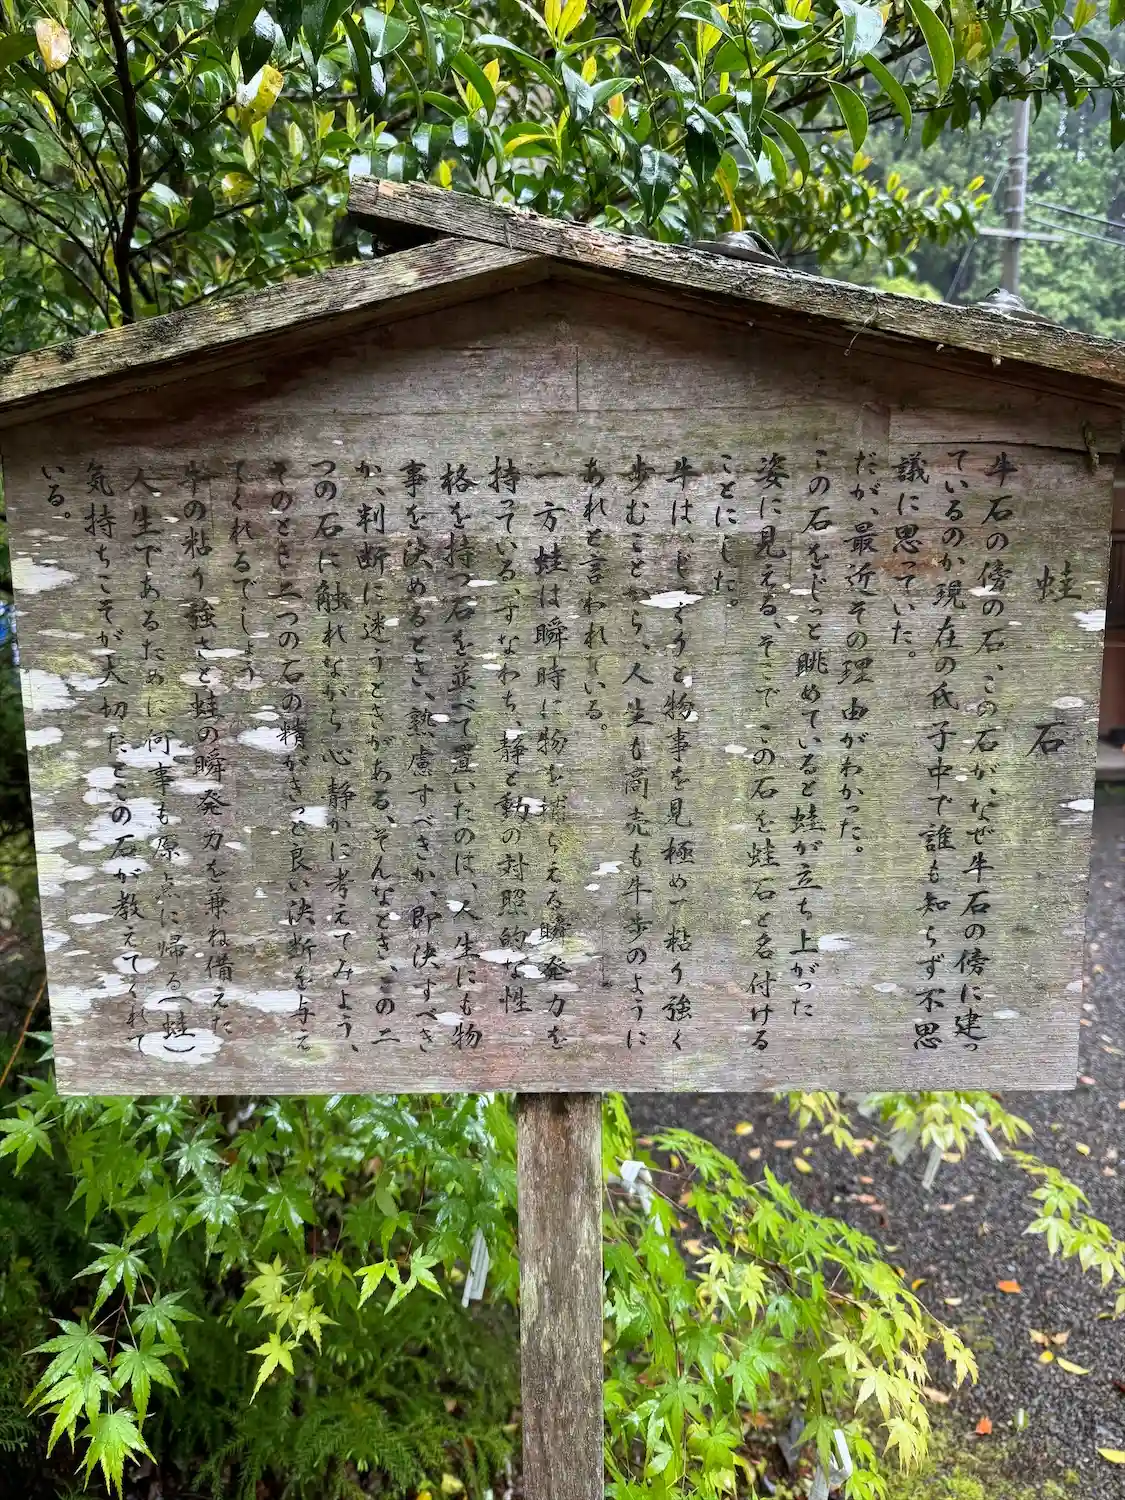 蛙石
牛石の傍の石、この石が、なぜ牛石の傍に建っ
ているのか現在の氏子中で誰も知らず不思
議に思っていた。
だが、最近その理由がわかった。
この石をじっと眺めていると蛙が立ち上がった
姿に見える、そこでこの石を蛙石と名付ける
ことにした。
牛は、じっくりと物事を見極め、粘り強く
歩むことから、人生も商売も牛歩のように
あれと言われている。
一方蛙は瞬時に物を捕らえる瞬発力を
持っている、すなわち、静と動の対照的な性
格を持つ石を並べて置いたのは、人生にも物
事を決めるとき、熟慮すべきか、即決すべき
か、判断に迷うときがある、そんなとき、この二
つの石に触れながら心静かに考えてみよう、
そのとき二つの石の精がきっと良い決断を与え
てくれるでしょう
牛の粘り強さと蛙の瞬発力を兼ね備えた
人生であるために何事も原点に帰る(蛙)
気持ちこそが大切だとこの石が教えてくれて
いる。